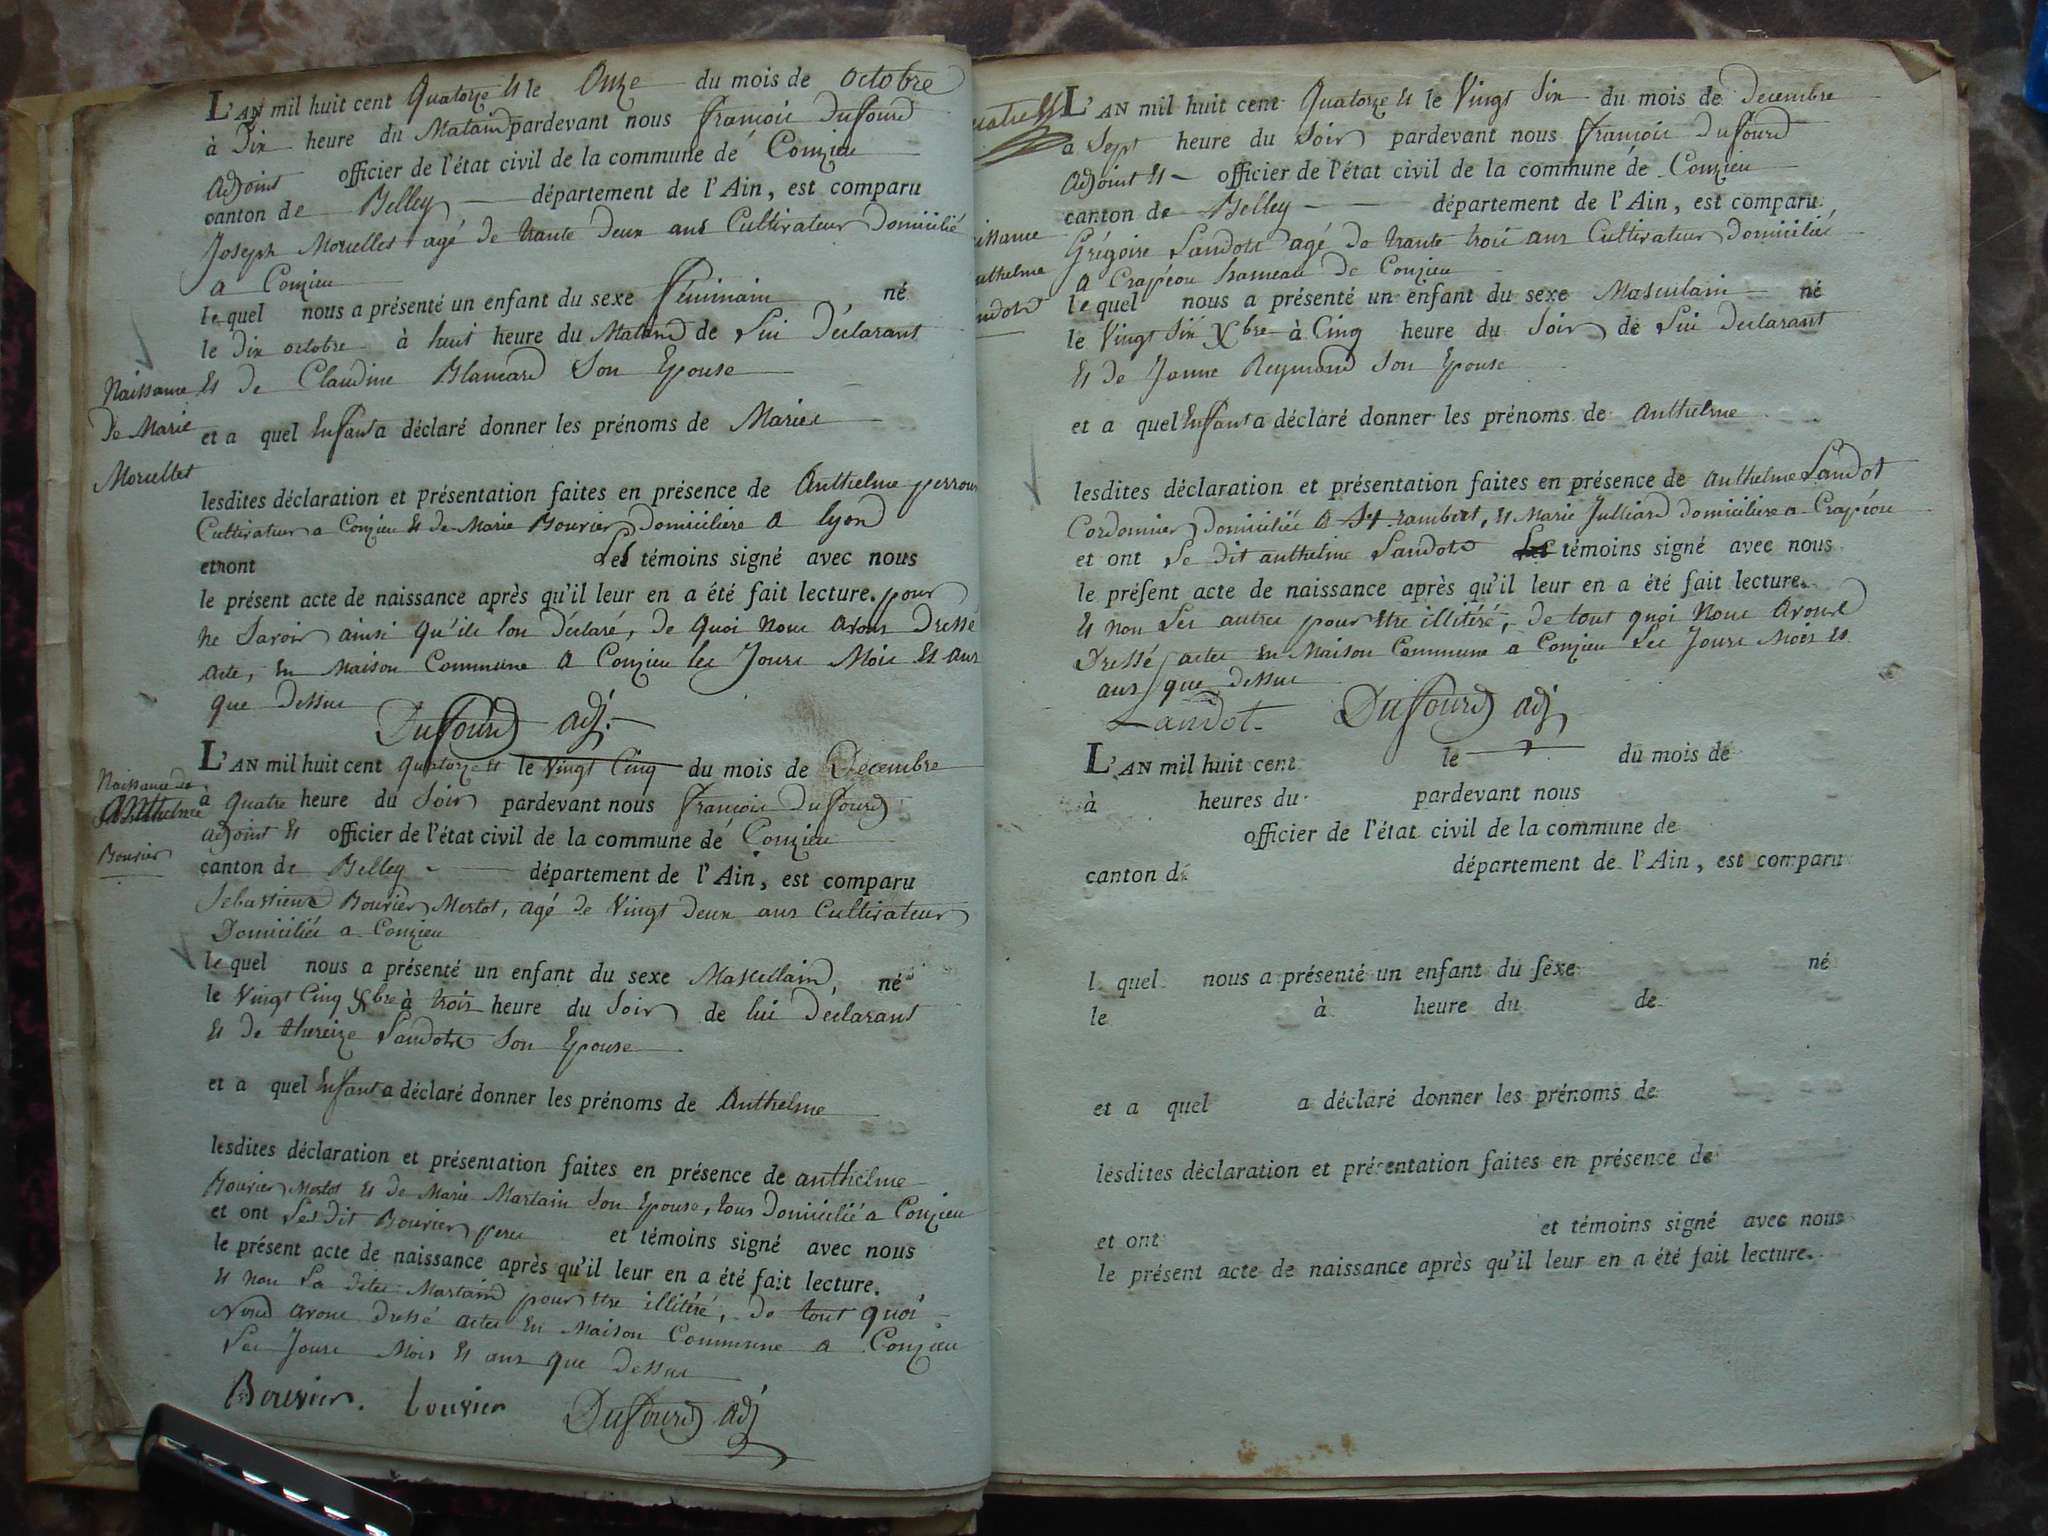 L'AN mil huit cent Quatorze et le Onze du mois de octobre
à Dix heure du Matain pardevant nous françois Duffourd
adjoint officier de l'état civil de la commune de Conzieu
canton de Belley département de l'Ain, est comparu
Joseph Morcellet agé de trante deux ans Cultivateur Domicilié
a Conzieu
le quel nous a présenté un enfant du sexe féminain né
le dix octobre à huit heure du Matain de Lui Déclarant
Naissance
et de Claudine Blancard Son Epouse
De Marie
et a quel Enffant a déclaré donner les prénoms de Marie
Morcellet
lesdites déclaration et présentation faites en présence de Anthelme
Cultivateur a Conzieu et de Marie Bouvier domiciliere a lyon
etront Les témoins signé avec nous
le présent acte de naissance après qu'il leur en a été fait lecture. pour
ne Savoir ainsi qu'ils lon déclaré, de quoi nous avons Dressé
acte, en Maison Commune a Conzieu les Jours Mois et ans
que Dessus
Duffourd adj.
L'AN mil huit cent quatorze et le Vingt Cinq du mois de Décembre
Naissance de
à quatre heure du Soir pardevant nous françois Duffourd
Anthelme
adjoint et officier de l'état civil de la commune de Conzieu
Bouvier
canton de Belley département de l'Ain, est comparu
Sebastiens Bouvier Mertot, agé de Vingt deux ans Cultivateur
Domicilié a Conzieu
le quel nous a présenté un enfant du sexe Masculain, né
le Vingt Cinq Xbre à trois heure du Soir de lui Déclarant
et de thereize Landot Son Epouse
et a quel Enffant a déclaré donner les prénoms de Anthelme
lesdites déclaration et présentation faites en présence de anthelme
Bouvier Mertot et de Marie Martain Son Epouse, tous Domicilié a Conzieu
et ont Les dit Bouvier pere et témoins signé avec nous
le présent acte de naissance après qu'il leur en a été fait lecture.
et non La dite Martain pour etre illitéré, de tout quoi
Nous avons dressé acte en Maison Commune a Conzieu
Les Jours Mois et ans que Dessus
Bouvier. bouvier Duffourd adj
L'AN mil huit cent Quatorze et le Vingt Six du mois de Decembre
a Sept heure du Soir pardevant nous françois Duffourd
adjoint et officier de l'état civil de la commune de Conzieu
canton de Belley département de l'Ain, est comparu
Grégoire Landot agé de trante trois ans Cultivateur Domicilié
a Crapéou hameau de Conzieu
le quel nous a présenté un enfant du sexe Masculain né
le Vingt Six Xbre à Cinq heure du Soir de Lui Declarant
et de Janne Reymond Son Epouse
et a quel Enffant a déclaré donner les prénoms de Anthelme
lesdites déclaration et présentation faites en présence de anthelme Landot
Cordonnier domicilié a St rambert, et Marie Julliard domiciliere a Crapéou
et ont Le dit anthelme Landot témoins signé avec nous
le présent acte de naissance après qu'il leur en a été fait lecture.
et non Les autres pour etre illitéré, de tout quoi Nous avons
Dressé acte en Maison Commune a Conzieu Les Jours Mois et
ans que dessus
Landot. Duffourd adj
L'AN mil huit cent le du mois de
à heures du pardevant nous
officier de l'état civil de la commune de
canton de département de l'Ain, est comparu
l quel nous a présenté un enfant du sexe né
le à heure du de
et a quel a déclaré donner les prénoms de
lesdites déclaration et présentation faites en présence de
et ont et témoins signé avec nous
le présent acte de naissance après qu'il leur en a été fait lecture.